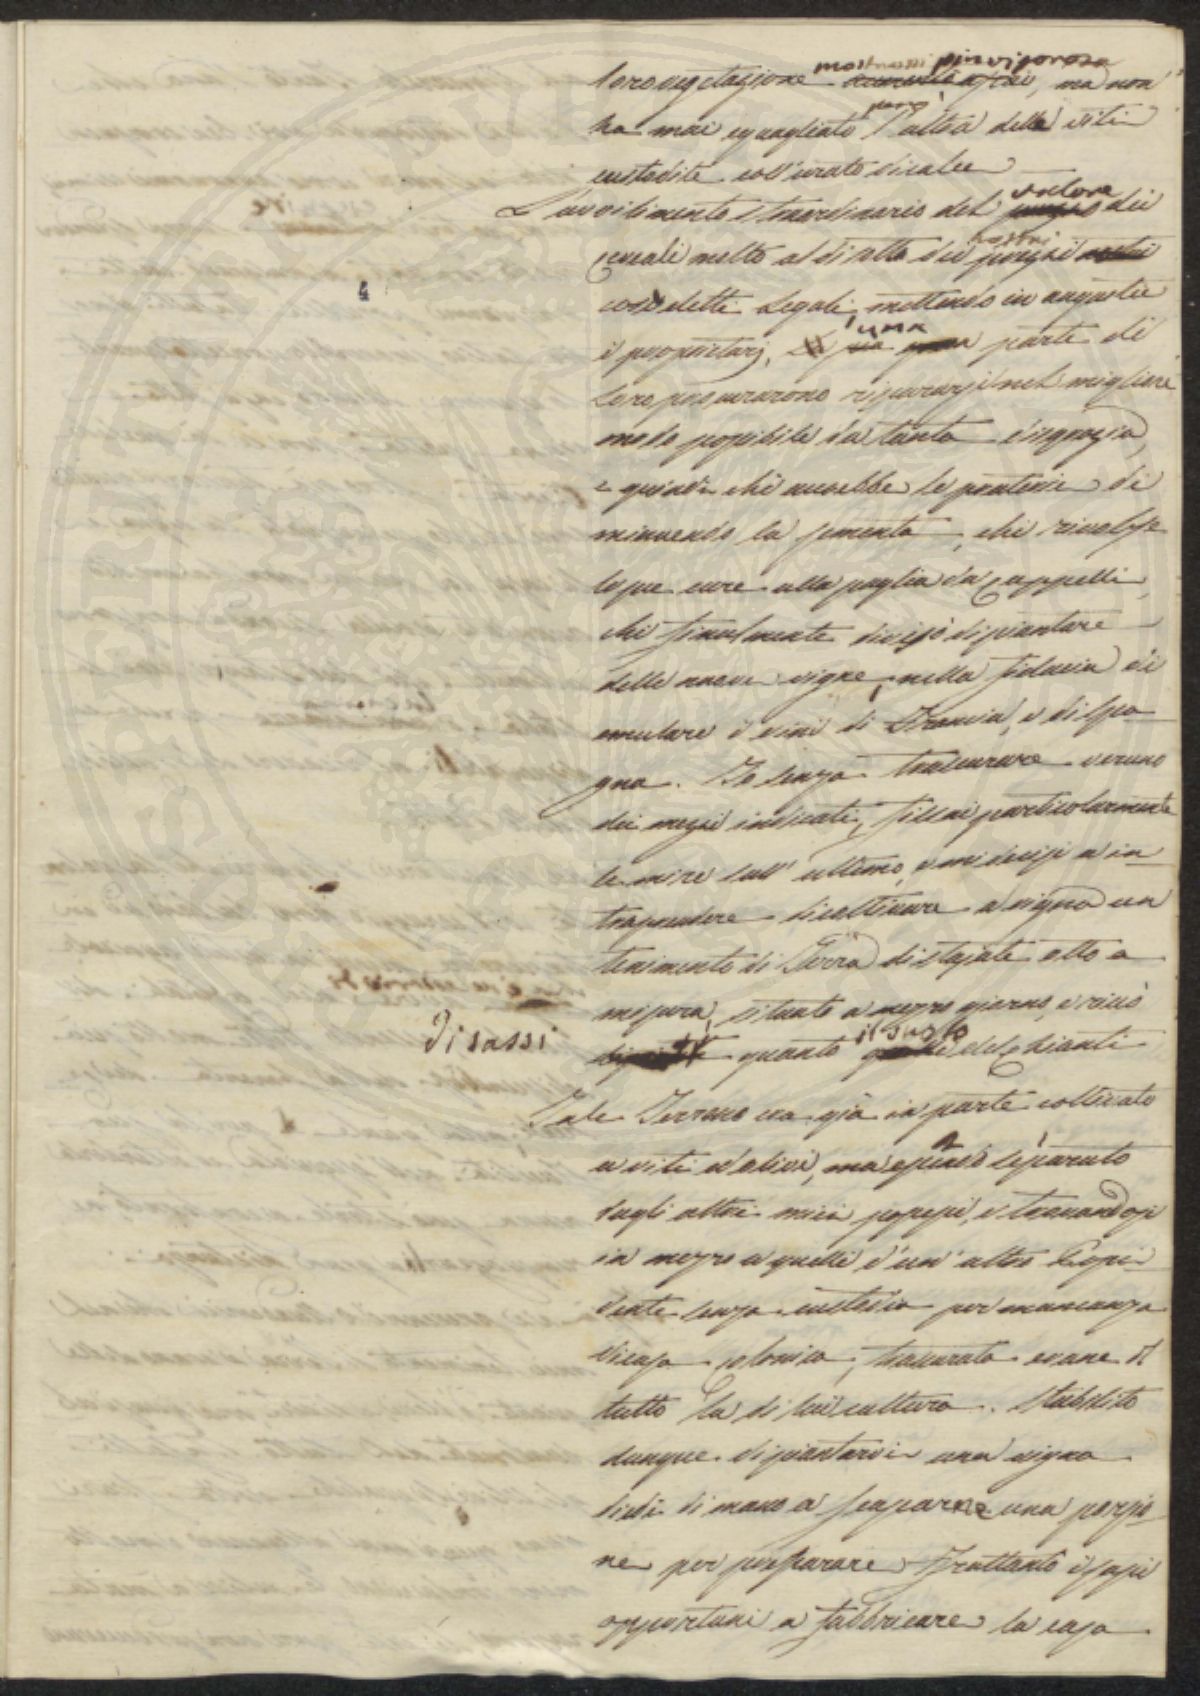 mostrassi più vigorosa
loro vegetazione, ma non
però
ha mai eguagliato l'altra delle viti
custodite coll'urato di calce
valore
L'avvilimento straordinario del prezzo dei
nostri
cereali molto al di sotto dei prezzi nostri
così detti Legali, mettendo in angustie
una
i proprietarj, parte di
Loro procurarono ripararsi nel migliore
modo possibile da tanta disgrazia,
e quindi chi accrebbe le praterie di
minuendo la sementa, chi rivolse
le sue cure alla paglia da Cappelli,
chi finalmente divisò di piantare
delle nuove vigne, nella fiducia di
emulare i vini di Francia, e di Spa
gna. Io senza trascurare veruno
dei mezzi indicati, fissai particolarmente
le mire sull'ultimo, e mi decisi a in
traprendere di coltivare a vigna un
tenimento di Terra di stajate otto a
misura, situato a mezzo giorno, e ricco
di sassi
il suolo
quanto del Chianti
Tale Terreno era già in parte coltivato
a viti ed olivi, ma essendo separato
dagli altri miei possessi, e trovandosi
in mezzo a quelli d'un'altro Possi
dente senza custodia per mancanza
di casa colonica, trascurata erane il
tutto la di lui cultura. Stabilito
dunque di piantarvi una vigna
diedi di mano a scassarne una porzio
ne per preparare frattanto i sassi
opportuni a fabbricare la casa
4